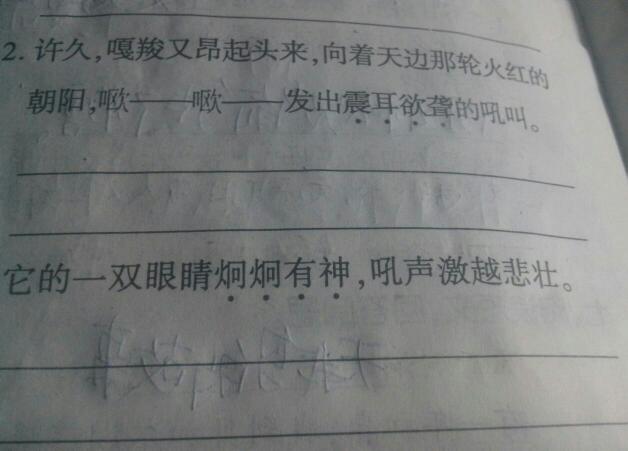 2. 许久,嘎羧又昂起头来,向着天边那轮火红的
朝阳,噷——噷——发出震耳欲聋的吼叫。
它的一双眼睛炯炯有神,吼声激越悲壮。